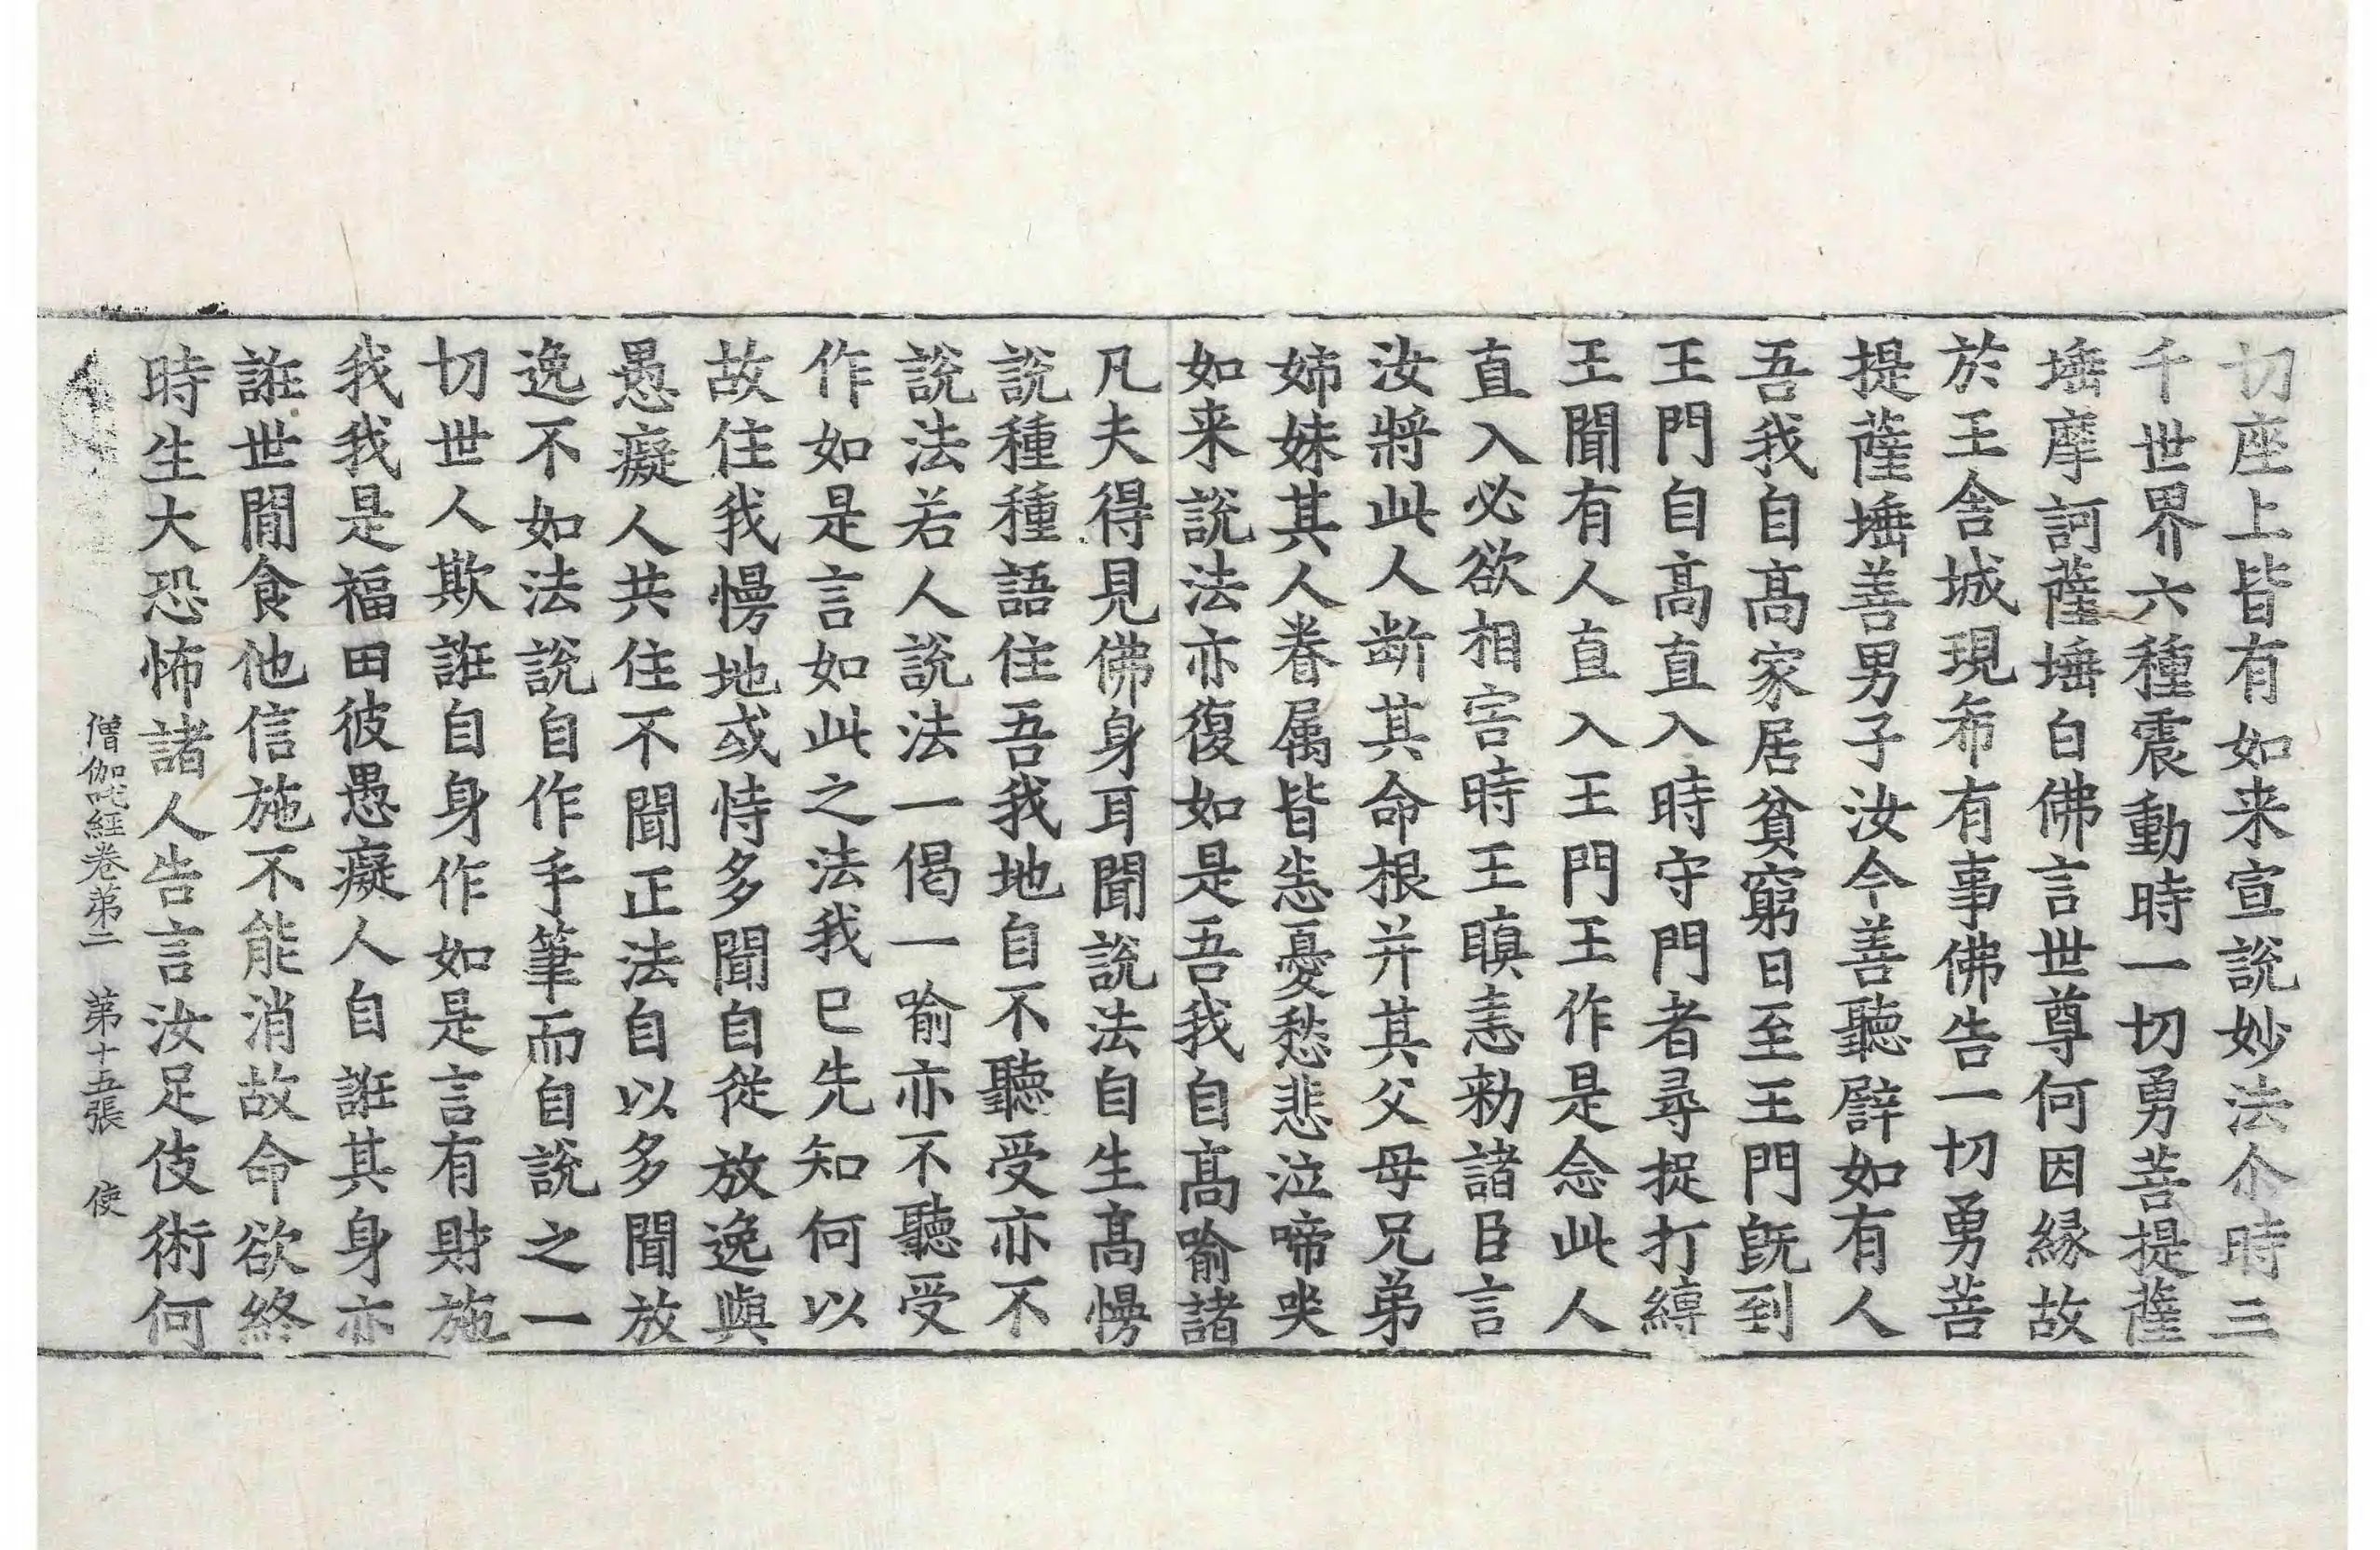 切座上皆有如来宣說妙法尒時三
千世界六種震動時一切勇菩提薩
埵摩訶薩埵白佛言世尊何因縁故
於王舍城現希有事佛告一切勇菩
提薩埵善男子汝今善聽譬如有人
吾我自髙家居貧窮日至王門旣到
王門自髙直入時守門者尋捉打縛
王聞有人直入王門王作是念此人
直入必欲相害時王瞋恚勑諸臣言
汝將此人斷其命根并其父母兄弟
姊妹其人眷属皆恚憂愁悲泣啼哭
如来說法亦復如是吾我自髙喻諸
凡夫得見佛身耳聞說法自生髙慢
說種種語住吾我地自不聽受亦不
說法若人說法一偈一喻亦不聽受
作如是言如此之法我已先知何以
故住我慢地或恃多聞自從放逸與
愚癡人共住不聞正法自以多聞放
逸不如法說自作手筆而自說之一
切世人欺誑自身作如是言有財施
我我是福田彼愚癡人自誑其身亦
誑世閒食他信施不能消故命欲終
時生大恐怖諸人告言汝足伎術何
僧伽吒經卷第二 第十五張 使